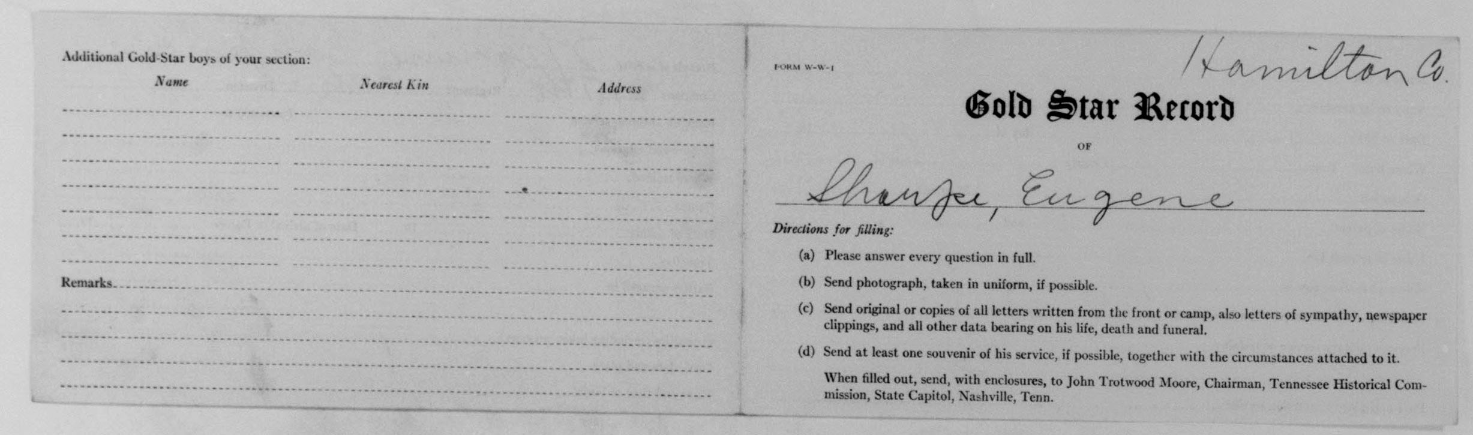 Additional Gold-Star boys of your section:
Name Nearest Kin Address
Remarks
FORM W-W-1
Hamilton Co.
Gold Star Record
OF
Sharpe, Eugene
Directions for filling:
(a) Please answer every question in full.
(b) Send photograph, taken in uniform, if possible.
(c) Send original or copies of all letters written from the front or camp, also letters of sympathy, newspaper
clippings, and all other data bearing on his life, death and funeral.
(d) Send at least one souvenir of his service, if possible, together with the circumstances attached to it.
When filled out, send, with enclosures, to John Trotwood Moore, Chairman, Tennessee Historical Com-
mission, State Capitol, Nashville, Tenn.